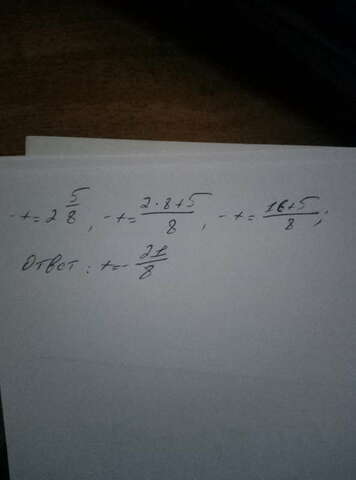 -x = 2 5/8, -x = 2·8+5/8, -x = 16+5/8;
Ответ: x = - 21/8